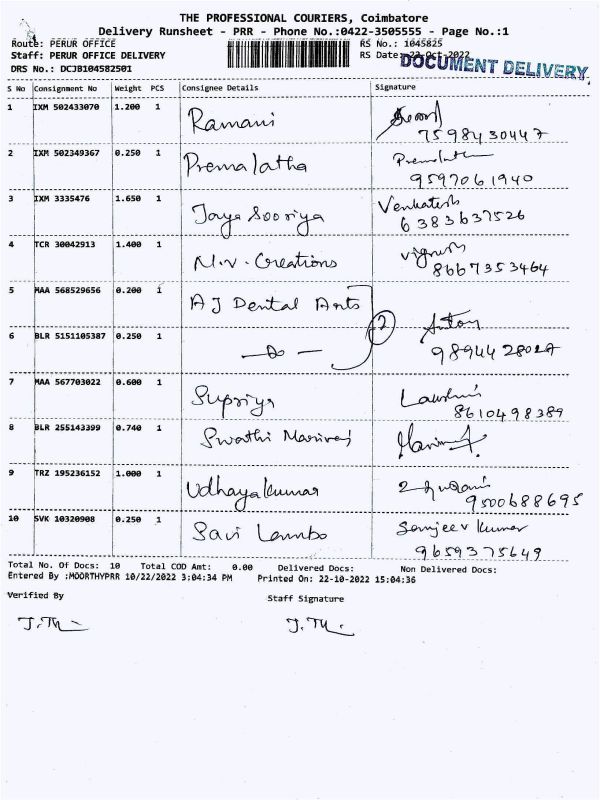 THE PROFESSIONAL COURIERS, Coimbatore
Delivery Runsheet - PRR - Phone No.:0422-3505555 - Page No.:1
Route: PERUR OFFICE RS No.: 1045825
Staff: PERUR OFFICE DELIVERY RS Date: 22-Oct-2022
DRS No.: DCJB104582501 DOCUMENT DELIVERY
S No Consignment No Weight PCS Consignee Details Signature
1 IXM 502433070 1.200 1 Ramani
7598430447
2 IXM 502349367 0.250 1 Premalatha Premalatha
9597061940
3 IXM 3335476 1.650 1 Jaya Sooriya Venkatesh
6383637526
4 TCR 30042913 1.400 1 M.V. Creations vignesh
8667353464
5 MAA 568529656 0.200 1 AJ Dental Arts
6 BLR 5151105387 0.250 1 -do- 2 Antony
7 MAA 567703022 0.600 1 Supriya Lakshmi
8610498389
8 BLR 255143399 0.740 1 Swathi
9 TRZ 195236152 1.000 1 Udhayakumar
9500688695
10 SVK 10320908 0.250 1 Savi Sanjeev Kumar
9659375649
Total No. Of Docs: 10 Total COD Amt: 0.00 Delivered Docs: Non Delivered Docs:
Entered By :MOORTHYPRR 10/22/2022 3:04:34 PM Printed On: 22-10-2022 15:04:36
Verified By Staff Signature